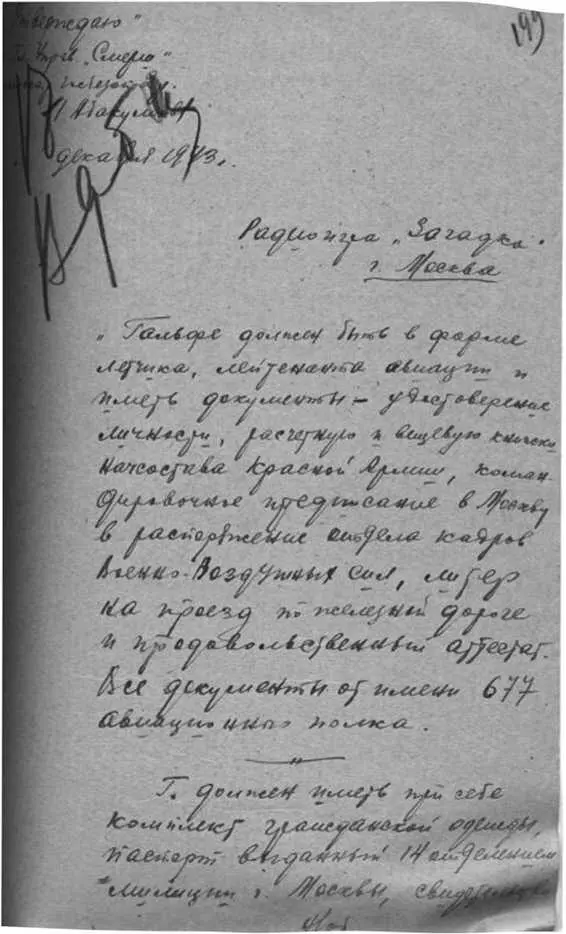 199
"Утверждаю"
"Смерш"
Абакумов
декабря 1943г.
Радиоигра „Загадка"
г. Москва
„Гальфе должен быть в форме
летчика, лейтенанта авиации и
иметь документы – удостоверение
личности, расчетную и вещевую книжки
начсостава Красной Армии, коман-
дировочное предписание в Москву
в распоряжение отдела кадров
Военно-Воздушных сил, литер
на проезд по железной дороге
и продовольственный аттестат.
Все документы от имени 677
авиационного полка.
Г. должен иметь при себе
комплект гражданской одежды,
паспорт выданный 14 отделением
милиции г. Москвы, свидетельство